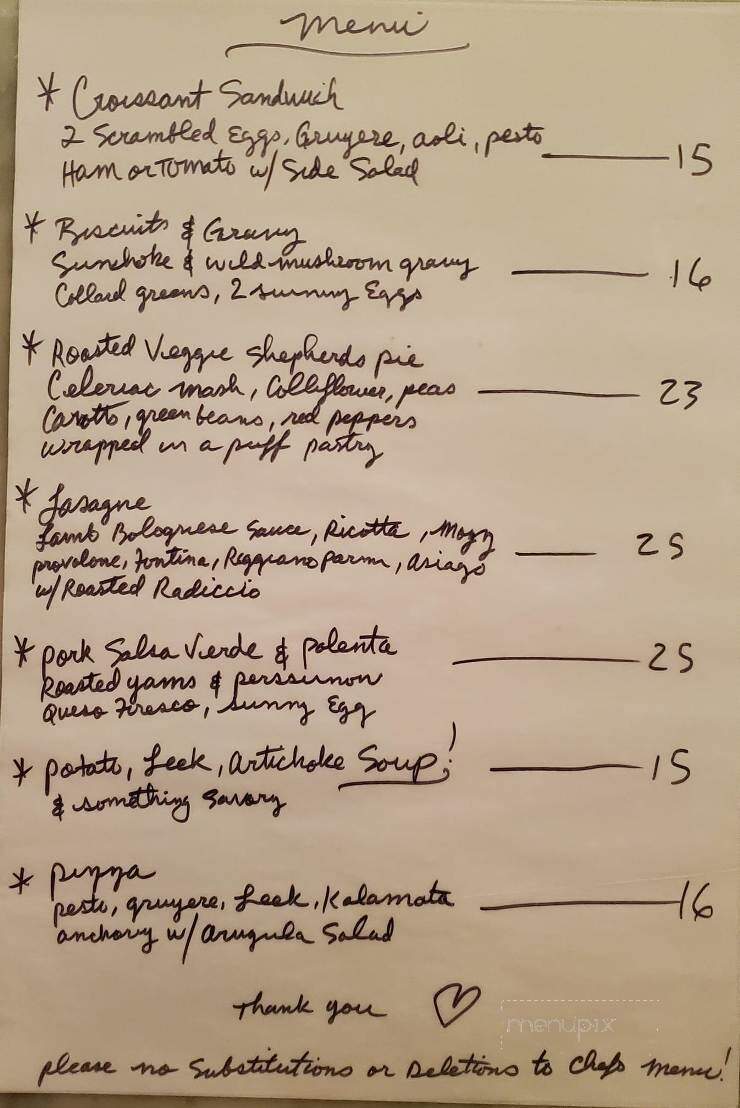 Menu
* Croissant Sandwich
2 Scrambled Eggs, Gruyere, aoli, pesto
Ham or Tomato w/ Side Salad 15
* Biscuits & Gravy
Sunchoke & wild mushroom gravy 16
Collard greens, 2 sunny Eggs
* Roasted Veggie Shepherds pie
Celeriac mash, Colliflower, peas 23
Carotts, green beans, red peppers
wrapped in a puff pastry
* Lasagne
Lamb Bolognese Sauce, Ricotta, Mozz
provolone, Fontina, Reggiano Parm, asiago 25
w/ Roasted Radiccio
* pork Salsa Verde & polenta 25
Roasted yams & perssimon
Queso Fresco, sunny Egg
* potato, Leek, artichoke Soup! 15
& something Savory
* pizza
pesto, gruyere, Leek, Kalamata 16
anchovy w/ arugula Salad
Thank you ♡
menupix
please no Substitutions or Deletions to Chefs menu!